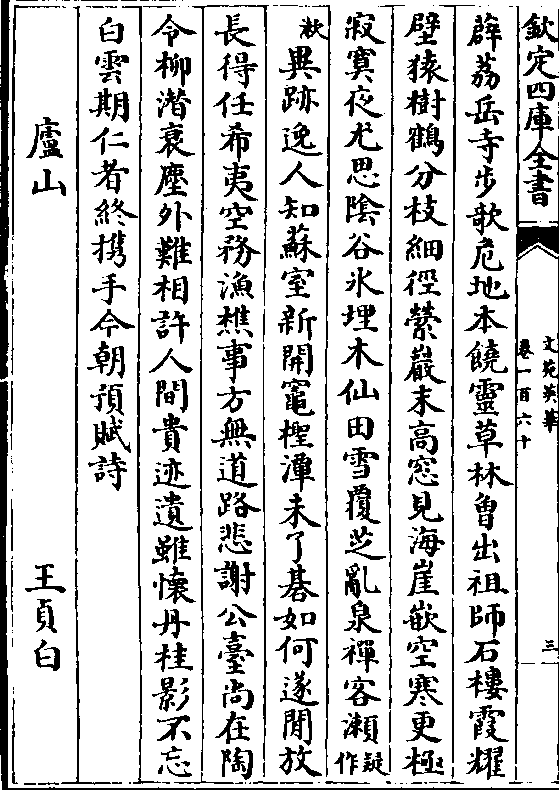 欽定四庫全書
文苑英華
卷一百六十
三
薜荔岳寺步欹危地本饒靈草林曾出祖師石樓霞耀
壁猿樹鶴分枝細徑縈巖末高窓見海崖嵌空寒更極
寂寞夜尤思陰谷氷埋木仙田雪覆芝亂泉禪客瀨疑作
漱異跡逸人知蘇室新開竈檉潭未了碁如何遂閒放
長得任希夷空務漁樵事方無道路悲謝公臺尚在陶
令柳潛衰塵外難相許人間貴迹遺雖懷丹桂影不忘
白雲期仁者終携手今朝預賦詩
廬山
王貞白